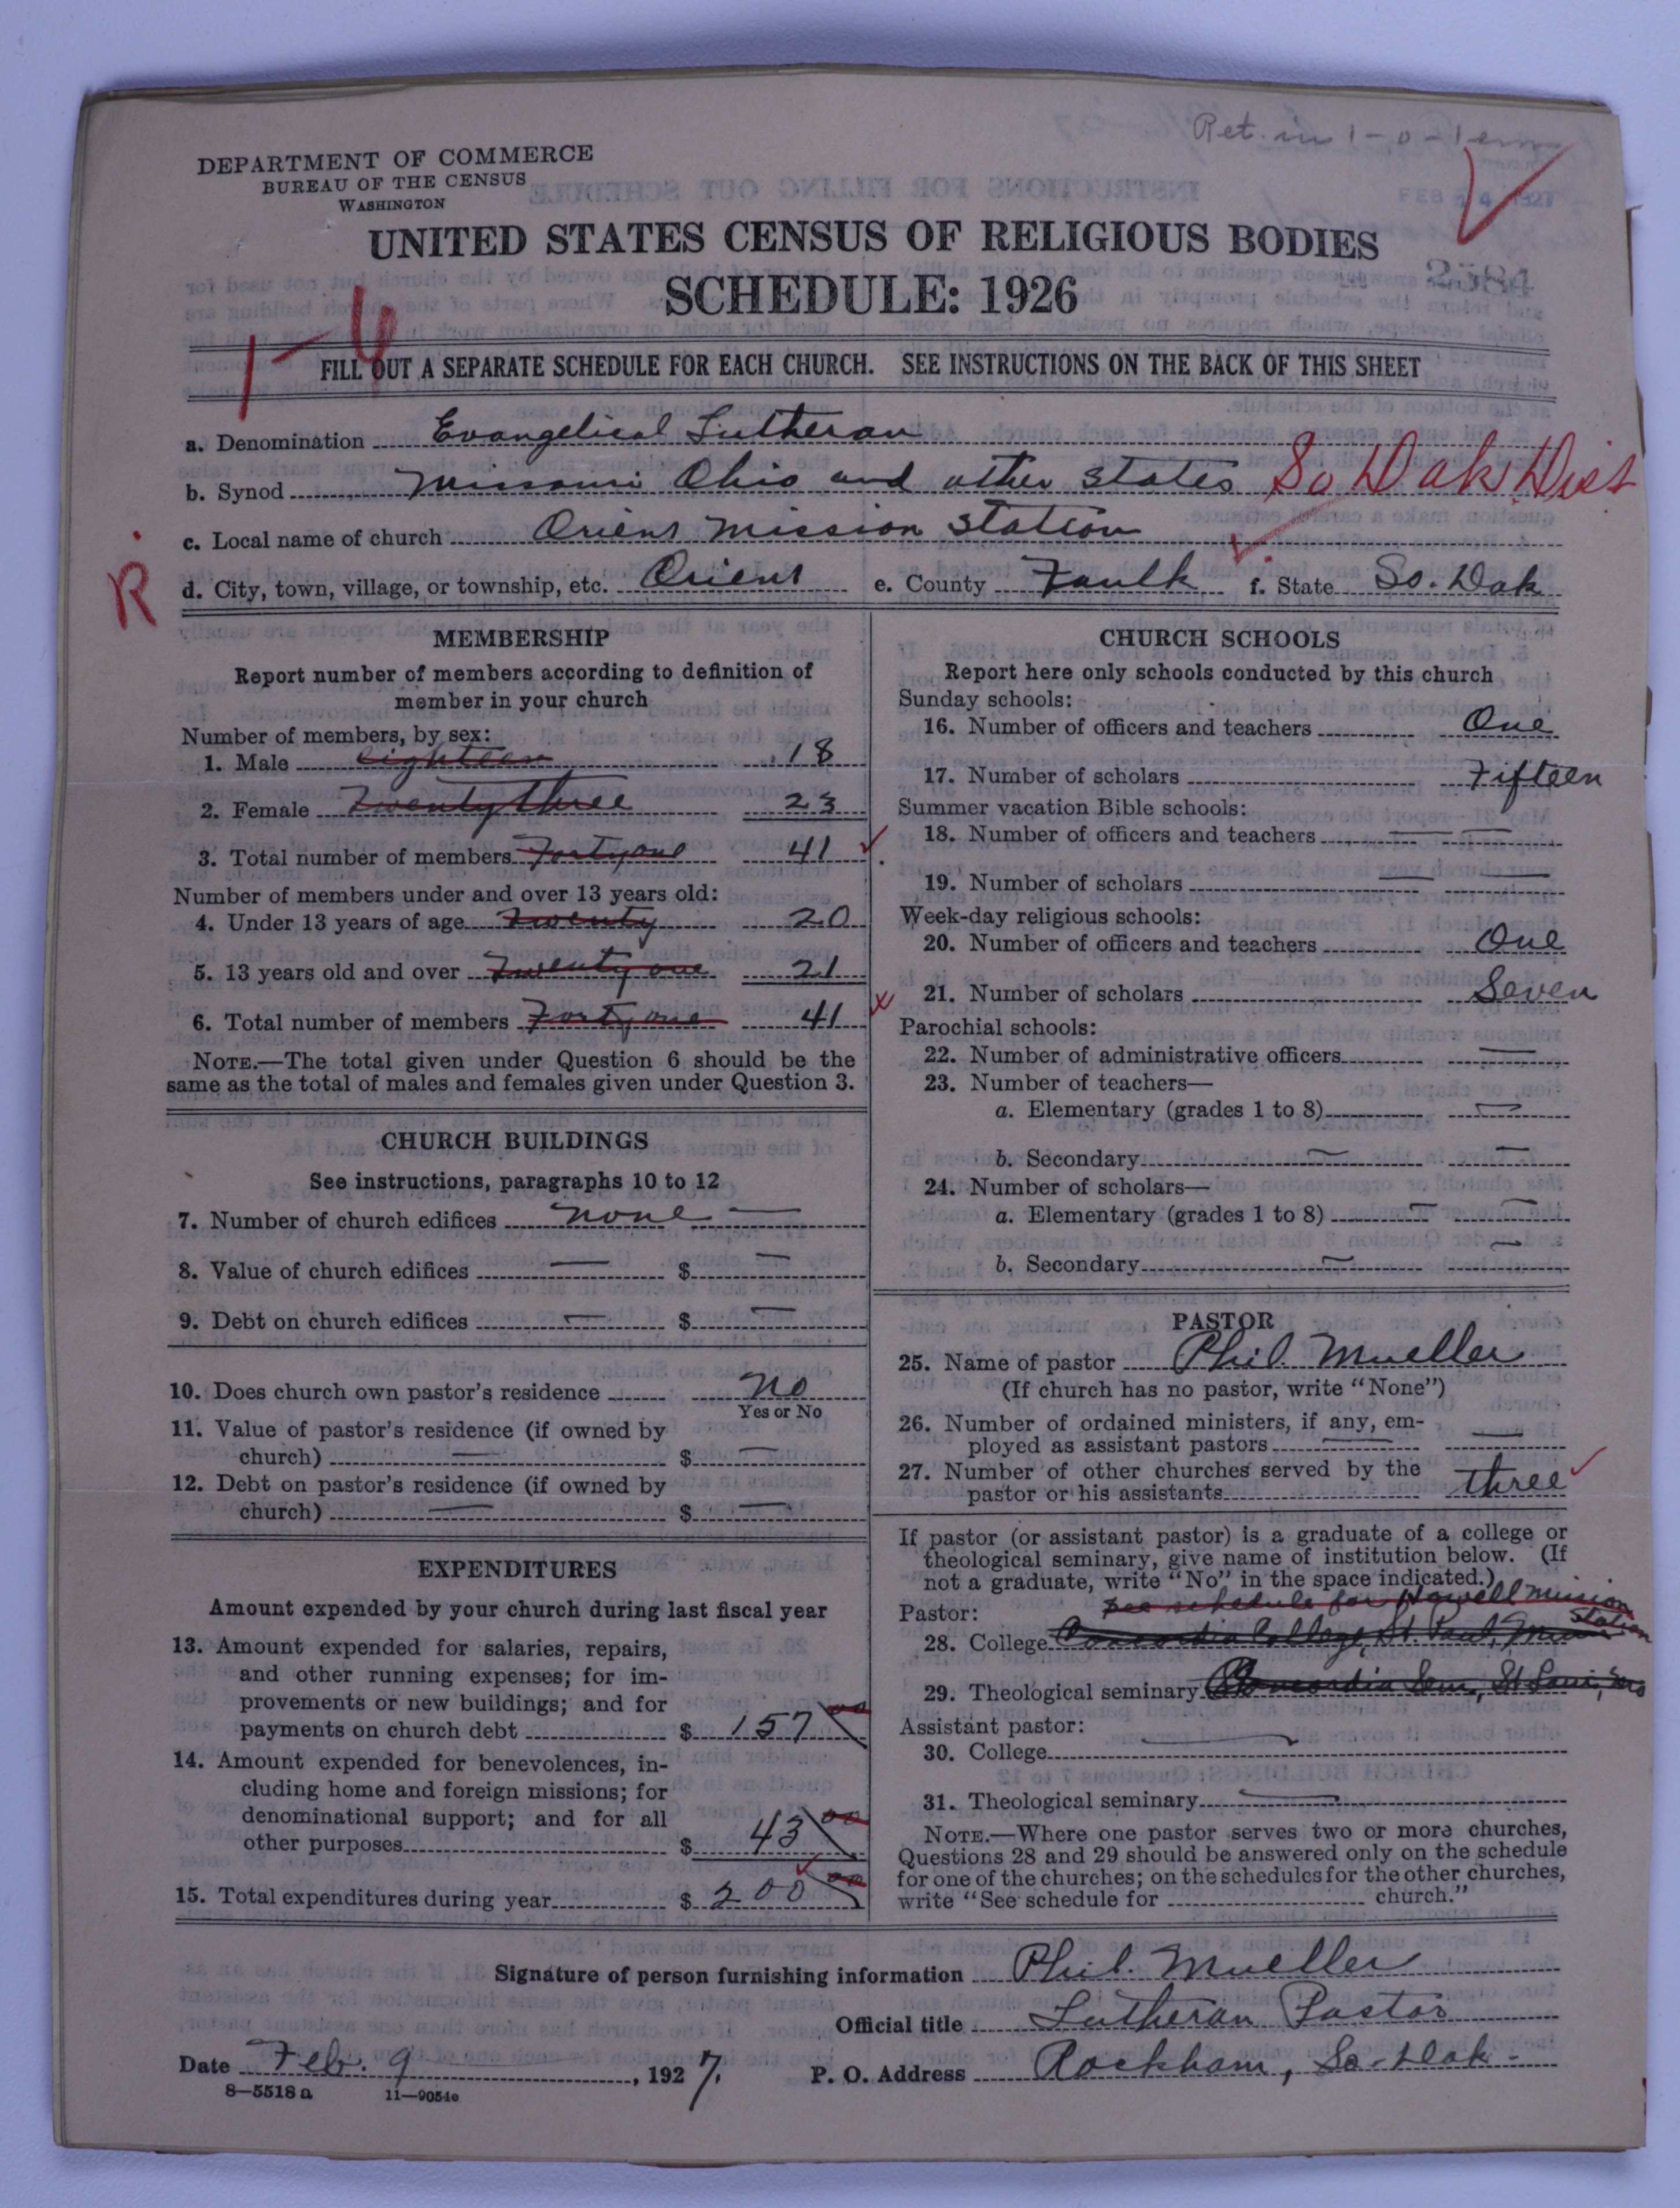 Ret. in 1-0-1
DEPARTMENT OF COMMERCE
BUREAU OF THE CENSUS
WASHINGTON
FEB 24 1927
UNITED STATES CENSUS OF RELIGIOUS BODIES
SCHEDULE: 1926
2584
1-6
FILL OUT A SEPARATE SCHEDULE FOR EACH CHURCH. SEE INSTRUCTIONS ON THE BACK OF THIS SHEET
a. Denomination Evangelical Lutheran
b. Synod Missouri Ohio and other states So Dak Dist
c. Local name of church Orient Mission Station
R
d. City, town, village, or township, etc. Orient e. County Faulk f. State So. Dak
MEMBERSHIP
Report number of members according to definition of
member in your church
Number of members, by sex:
1. Male eighteen 18
2. Female Twenty three 23
3. Total number of members Forty one 41
Number of members under and over 13 years old:
4. Under 13 years of age Twenty 20
5. 13 years old and over Twenty one 21
6. Total number of members Forty one 41
NOTE.—The total given under Question 6 should be the
same as the total of males and females given under Question 3.
CHURCH BUILDINGS
See instructions, paragraphs 10 to 12
7. Number of church edifices none —
8. Value of church edifices — $ —
9. Debt on church edifices — $ —
10. Does church own pastor's residence No
Yes or No
11. Value of pastor's residence (if owned by
church) — $ —
12. Debt on pastor's residence (if owned by
church) — $ —
EXPENDITURES
Amount expended by your church during last fiscal year
13. Amount expended for salaries, repairs,
and other running expenses; for im-
provements or new buildings; and for
payments on church debt $ 157 00
14. Amount expended for benevolences, in-
cluding home and foreign missions; for
denominational support; and for all
other purposes $ 43 00
15. Total expenditures during year $ 200 00
CHURCH SCHOOLS
Report here only schools conducted by this church
Sunday schools:
16. Number of officers and teachers One
17. Number of scholars Fifteen
Summer vacation Bible schools:
18. Number of officers and teachers — —
19. Number of scholars — —
Week-day religious schools:
20. Number of officers and teachers One
21. Number of scholars Seven
Parochial schools:
22. Number of administrative officers —
23. Number of teachers—
a. Elementary (grades 1 to 8) —
b. Secondary — —
24. Number of scholars—
a. Elementary (grades 1 to 8) — —
b. Secondary — —
PASTOR
25. Name of pastor Phil. Mueller
(If church has no pastor, write "None")
26. Number of ordained ministers, if any, em-
ployed as assistant pastors — —
27. Number of other churches served by the
pastor or his assistants three
If pastor (or assistant pastor) is a graduate of a college or
theological seminary, give name of institution below. (If
not a graduate, write "No" in the space indicated.)
see schedule for Howell Mission
Station
Pastor:
28. College Concordia College, St. Paul, Minn
29. Theological seminary Concordia Sem., St Louis, Mo
Assistant pastor:
30. College —
31. Theological seminary —
NOTE.—Where one pastor serves two or more churches,
Questions 28 and 29 should be answered only on the schedule
for one of the churches; on the schedules for the other churches,
write "See schedule for church."
Signature of person furnishing information Phil. Mueller
Official title Lutheran Pastor
Date Feb. 9, 1927. P. O. Address Rockham, So. Dak.
8—5518 a 11—9054c